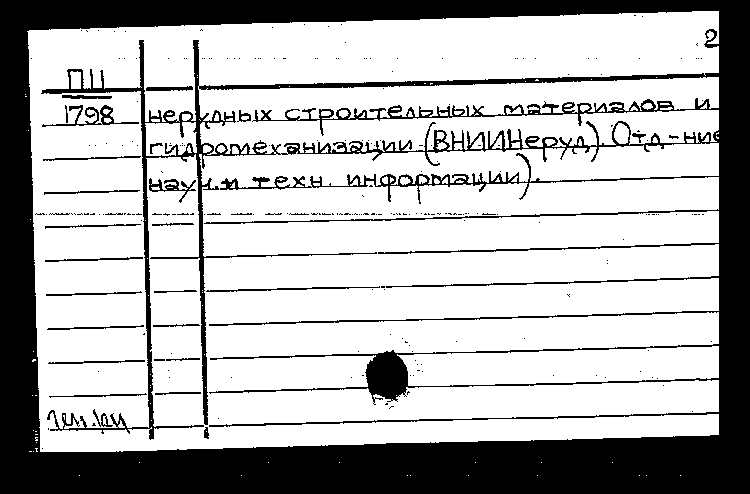 2
П11
1798 нерудных строительных материалов и
гидромеханизации (ВНИИНеруд). Отд-ние
науч.и техн. информации).